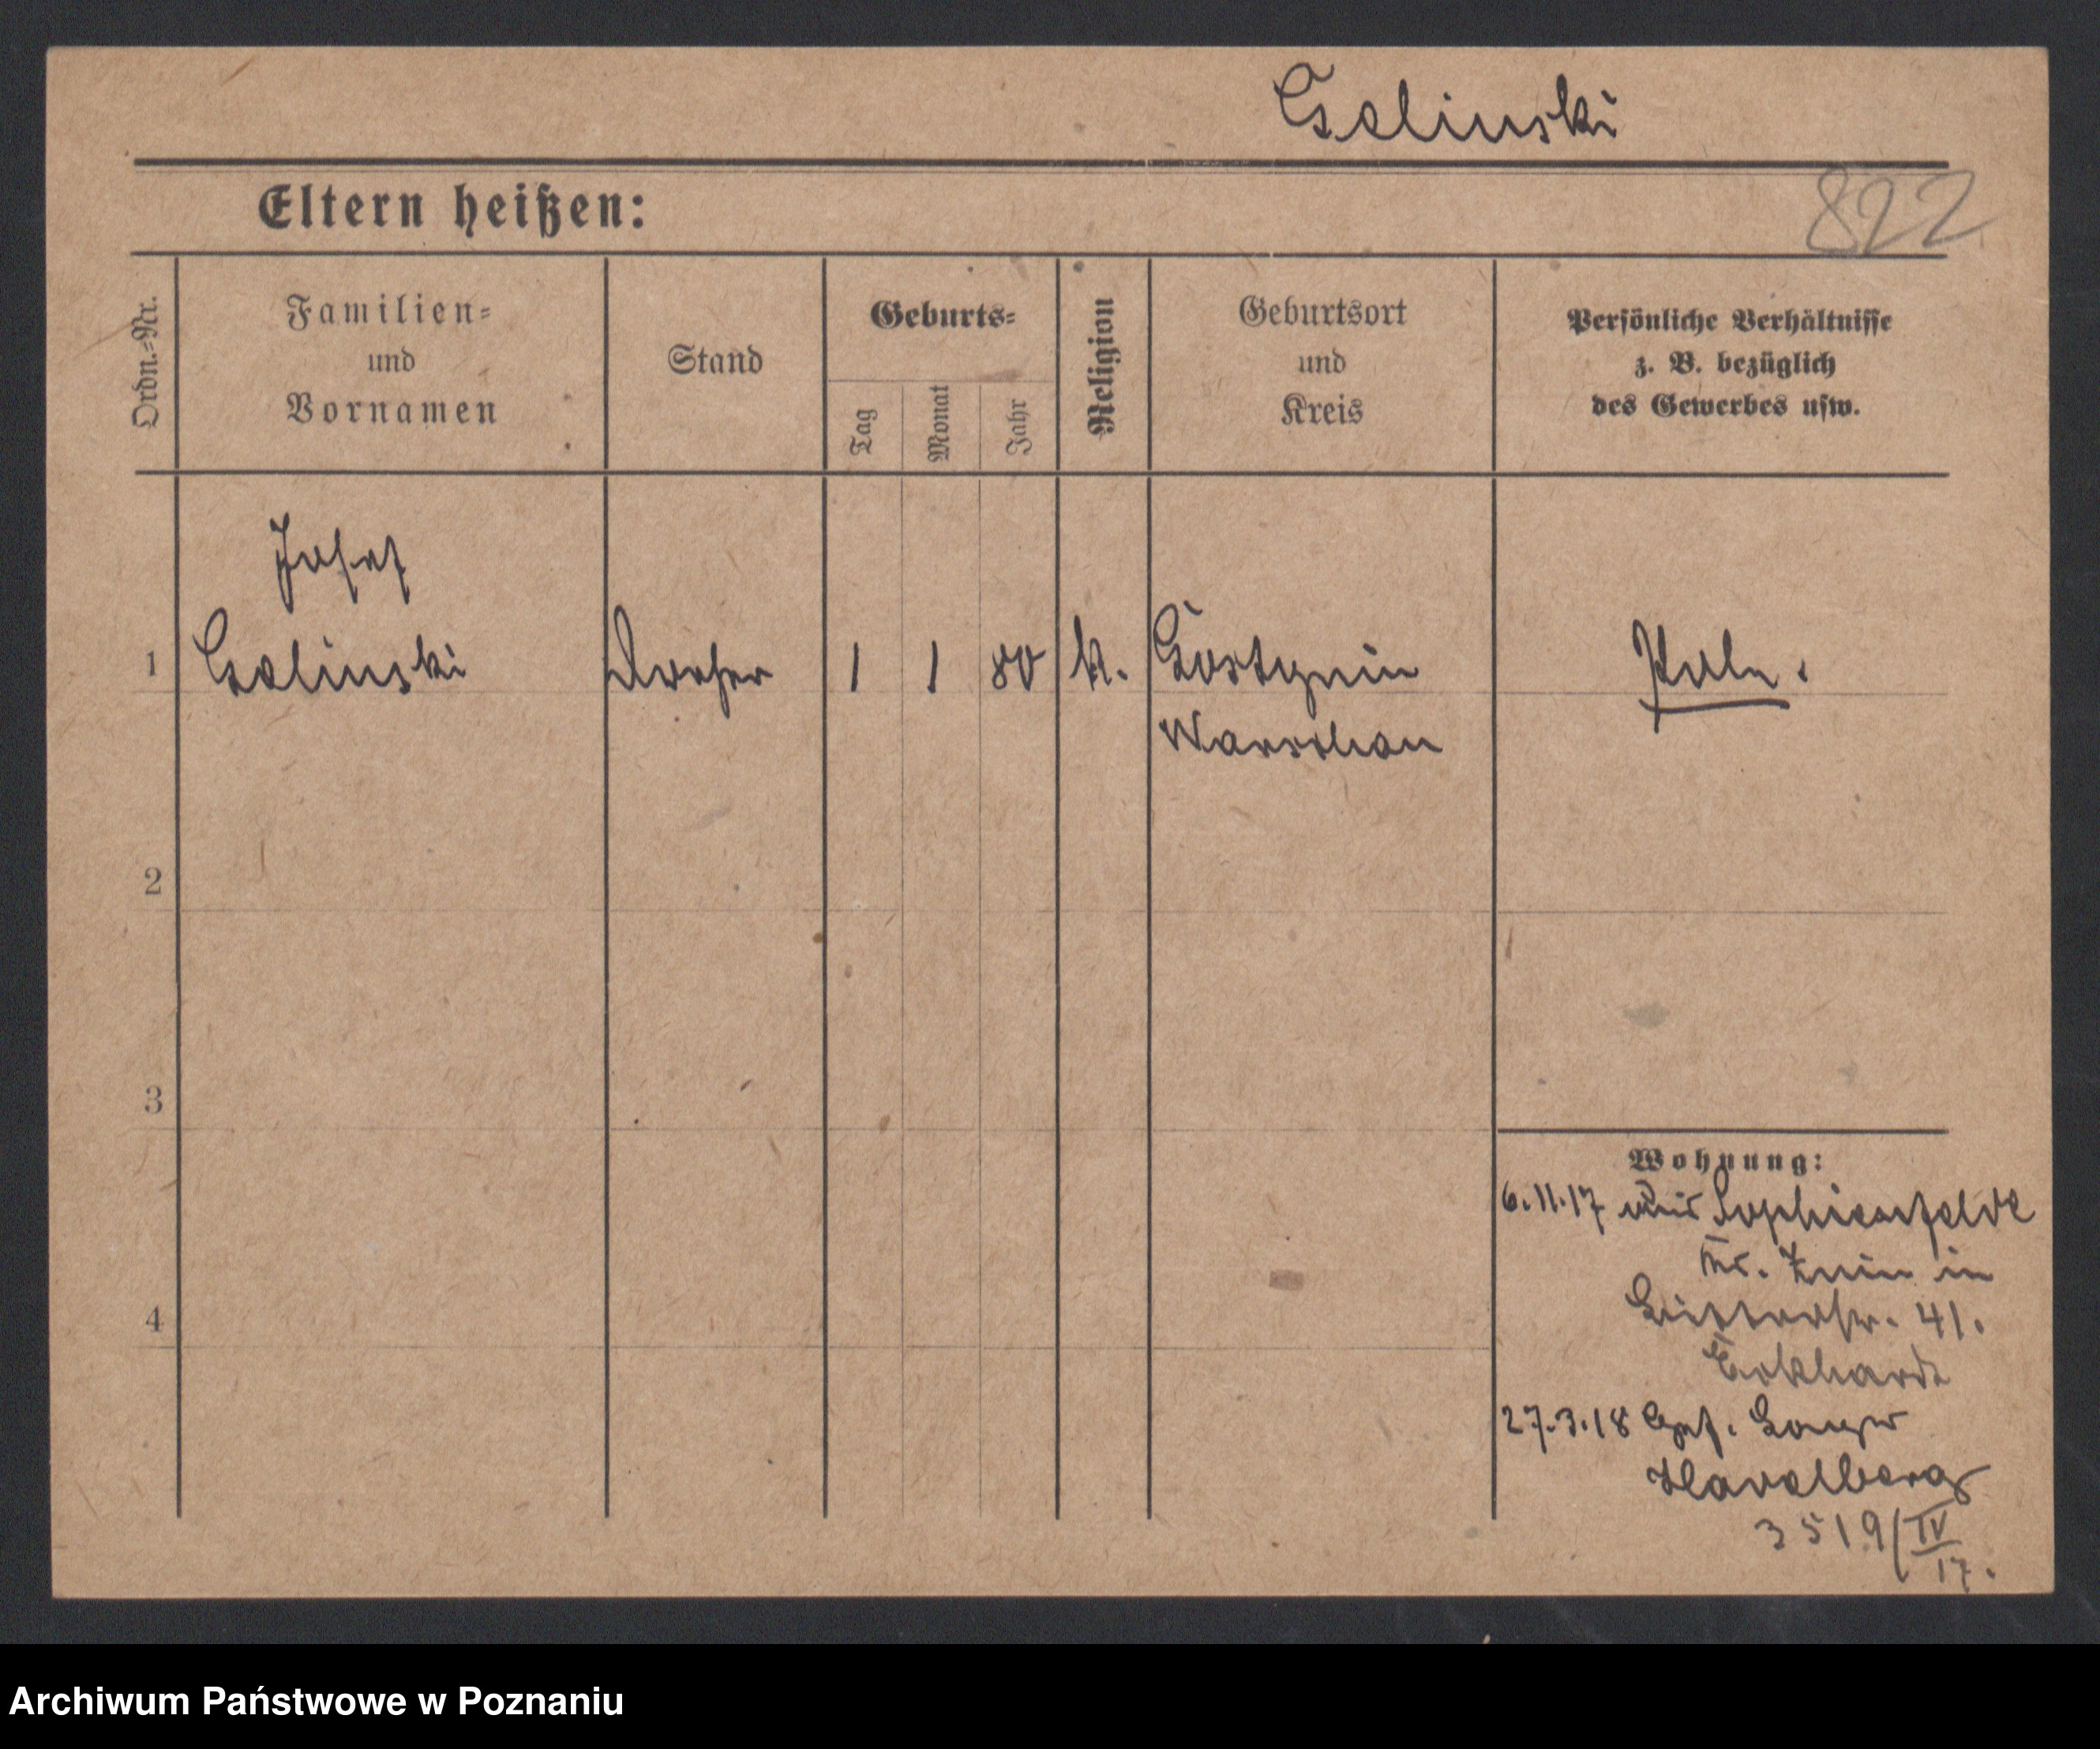 Galinski
Eltern heißen:
822
Ordn.=Nr.
Familien=
und
Vornamen
Stand
Geburts=
Tag
Monat
Jahr
Religion
Geburtsort
und
Kreis
Persönliche Verhältnisse
z. B. bezüglich
des Gewerbes usw.
Josef
1 Galinski 1 1 80 k. Gostynin
Warschau
2
3
4
Wohnung:
6.11.17 aus Sophienfelde
Kr. Znin in
41.
Eckhardt
27.3.18 Gef. Lager
Havelberg
3519/IV
17.
Archiwum Państwowe w Poznaniu